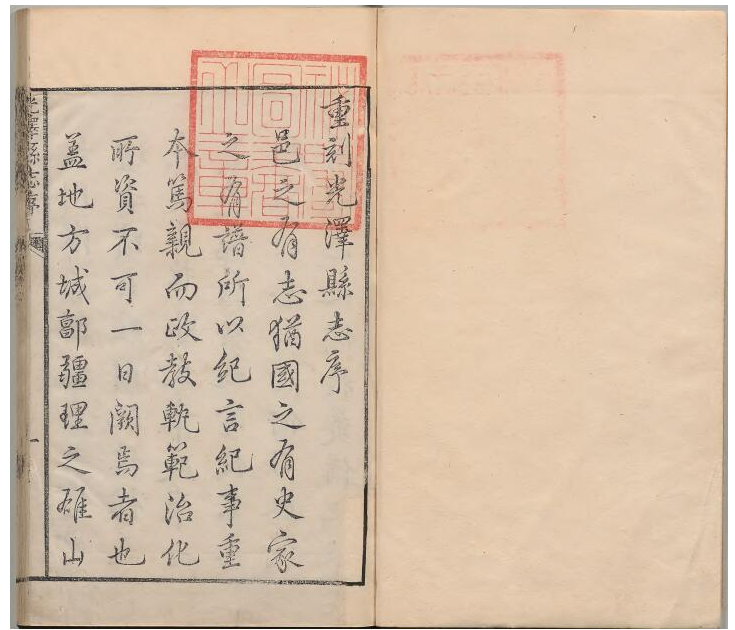 重刻光澤縣志序
邑之有志猶國之有史家
之有譜所以紀言紀事重
本篤親而政教軌範治化
所資不可一日闕焉者也
盖地方城鄙疆理之雄山
光澤縣志序
一